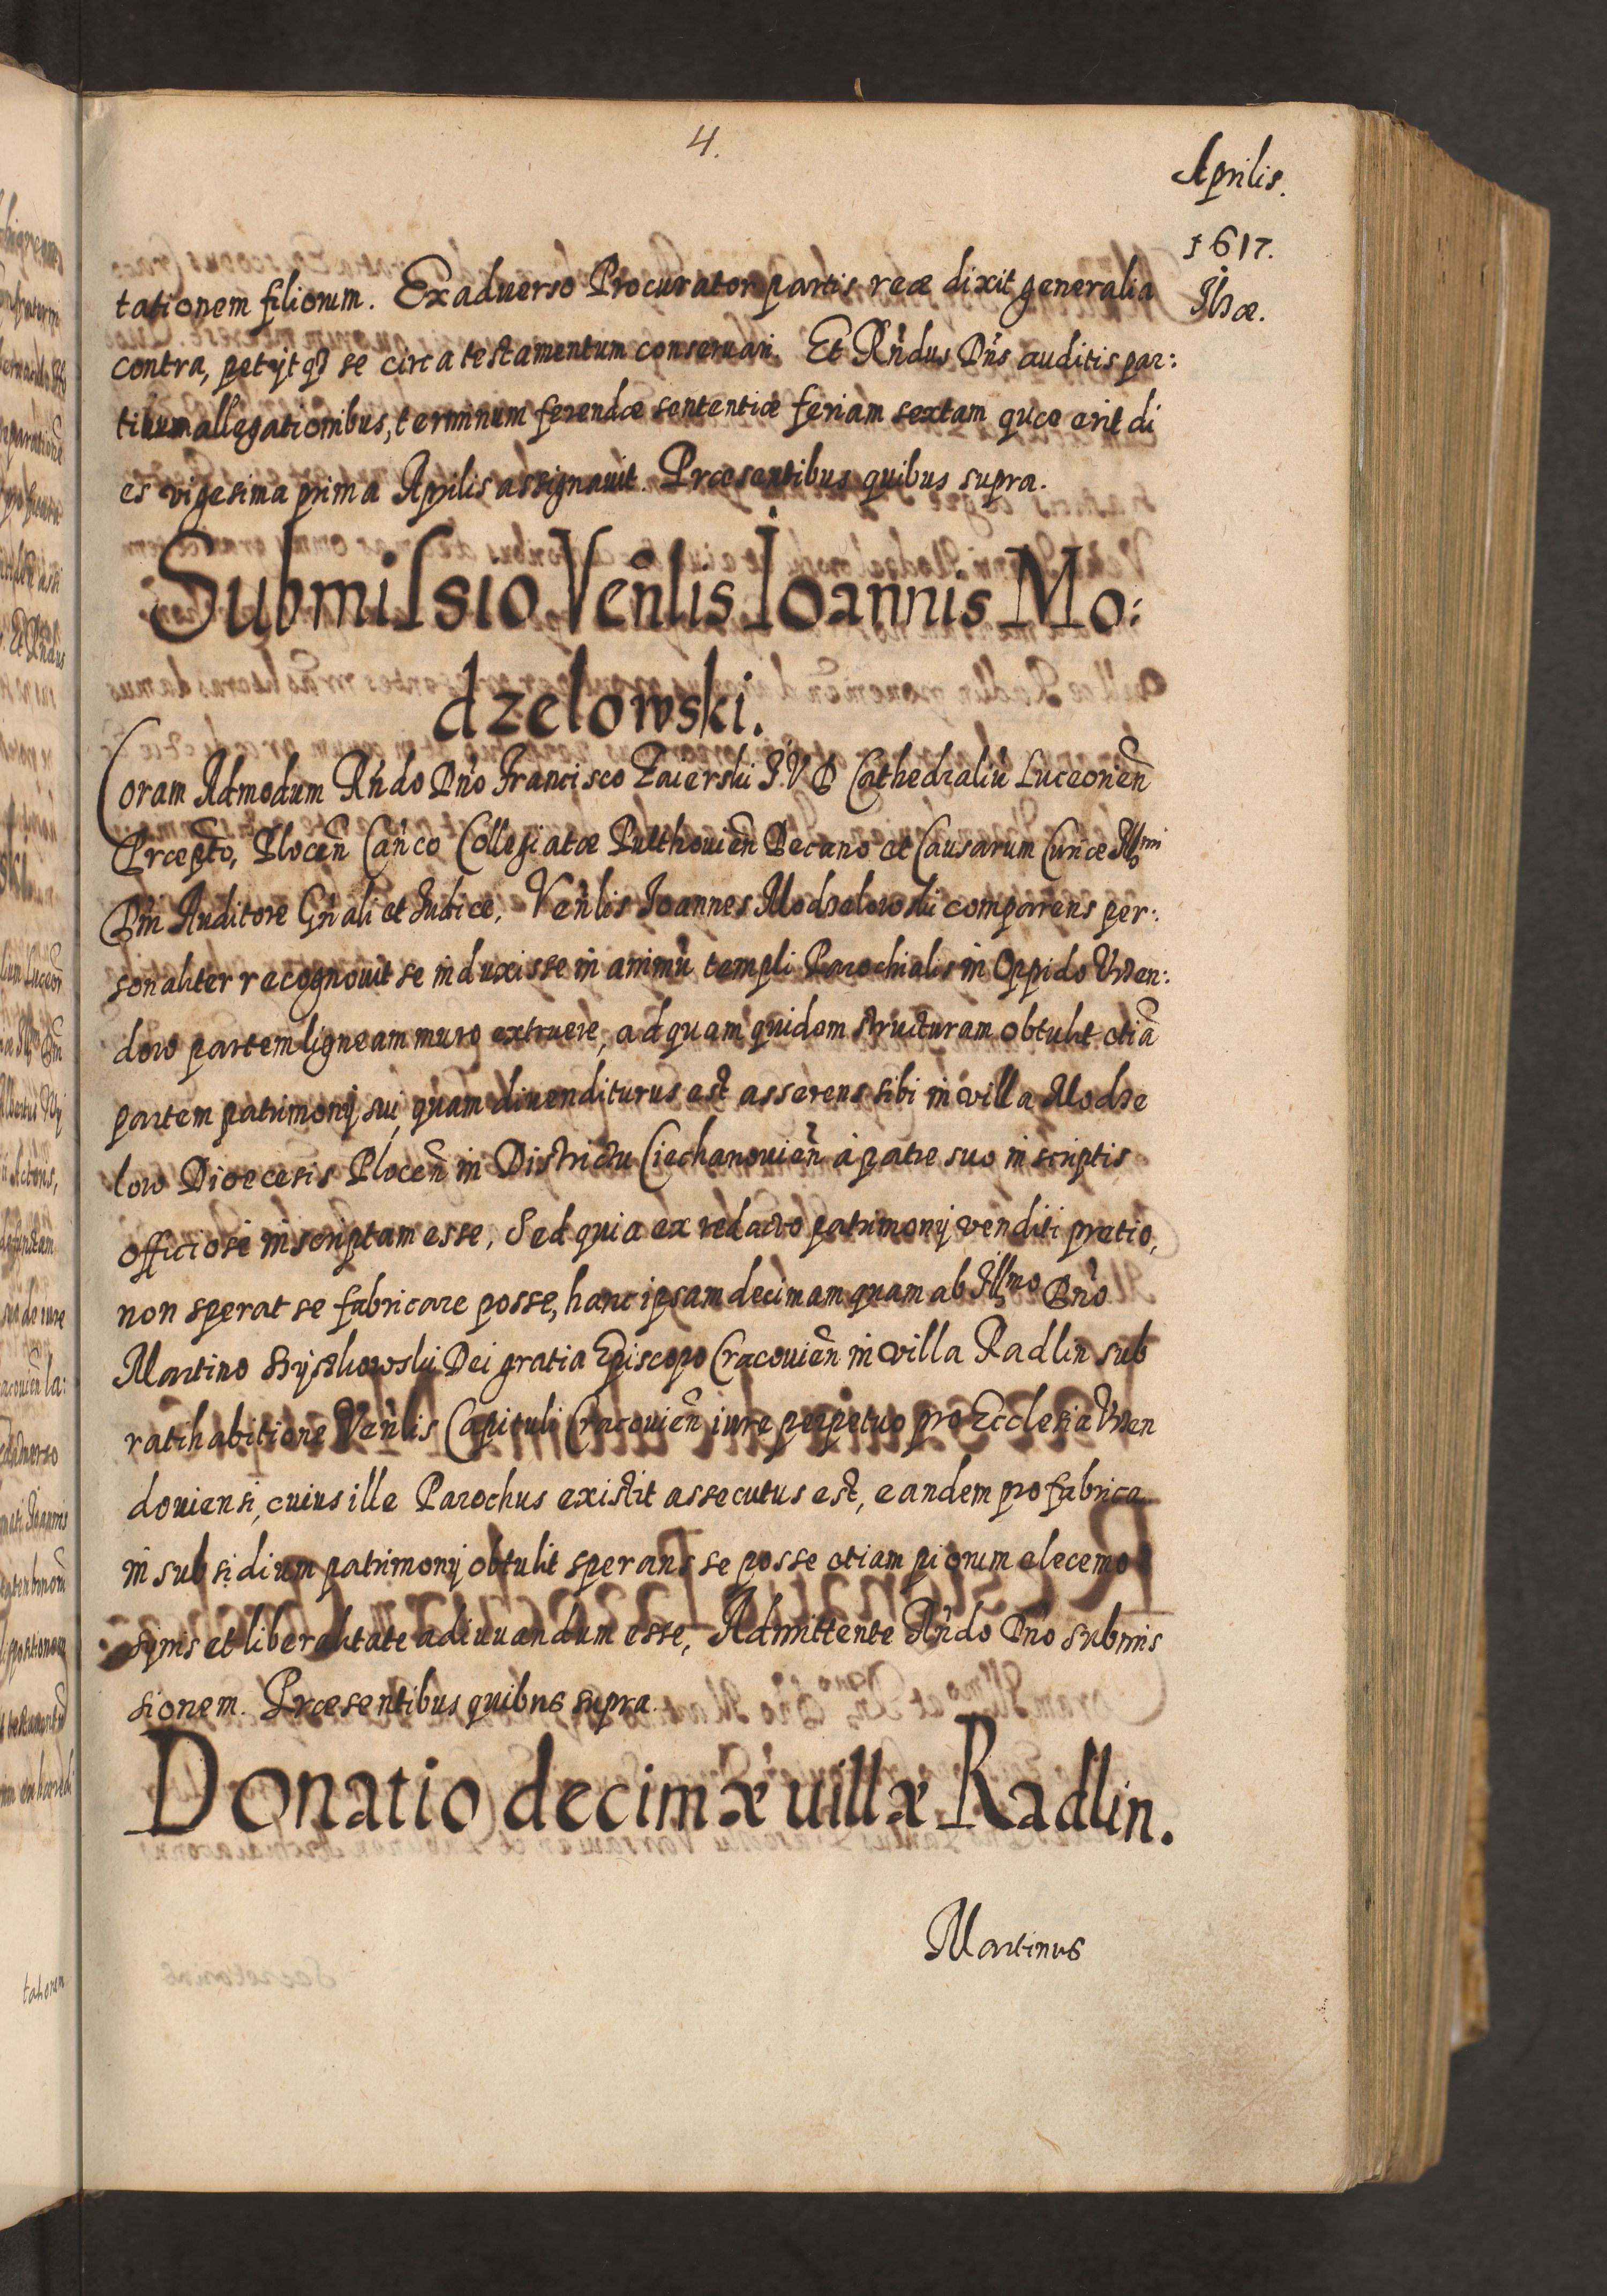 4.
Aprilis.
1617.
Ilzæ.
tationem filiorum. Ex aduerso Procurator partis reæ dixit generalia
contra, petijt q3 se circa testamentum conseruari. Et Rńdus Dńs auditis par:
tium allegationibus, terminum ferendæ sententiæ feriam sextam quæ erit di
es vigesima prima Aprilis assignauit. Præsentibus quibus supra.
Submissio Veńlis Ioannis Mo:
dzelowski.
Coram Admodum Rńdo Dńo Francisco Zaierski I.V.D Cathedraliū Luceorień
Præpto, Ploceń Cańco Collegiatæ Pulthouień Decano et Causarum Curiæ Illmi
Dńi Auditore Gńali et Iudice, Veńlis Ioannes Modzelowski comparens per:
sonaliter recognouit se induxisse in animū templi Parochialis in Oppido Vrzen:
dow partem ligneam muro extruere, ad quam quidem structuram obtulit etiā
partem patrimonij sui, quam diuenditurus est asserens sibi in villa Modze
low Dioecesis Ploceń in Districtu Ciechanouień à patre suo inscriptis
officiose inscriptam esse, Sed quia ex redacto patrimonij venditi pretio,
non sperat se fabricare posse, hanc ipsam decimam quam ab Illmo Dńo
Martino Szyszkowski Dei gratia Episcopo Cracouień in villa Radlin sub
ratihabitione Veńlis Capituli Cracouień iure perpetuo pro Ecclesia Vrzen
douiensi, cuius ille Parochus existit assecutus est, eandem pro fabrica
in subsidium patrimonij obtulit sperans se posse etiam piorum elecemo
synis et liberalitate adiuuandum esse, Admittente Rńdo Dńo submis
sionem. Præsentibus quibus supra.
Donatio decimæ uillæ Radlin.
Martinus